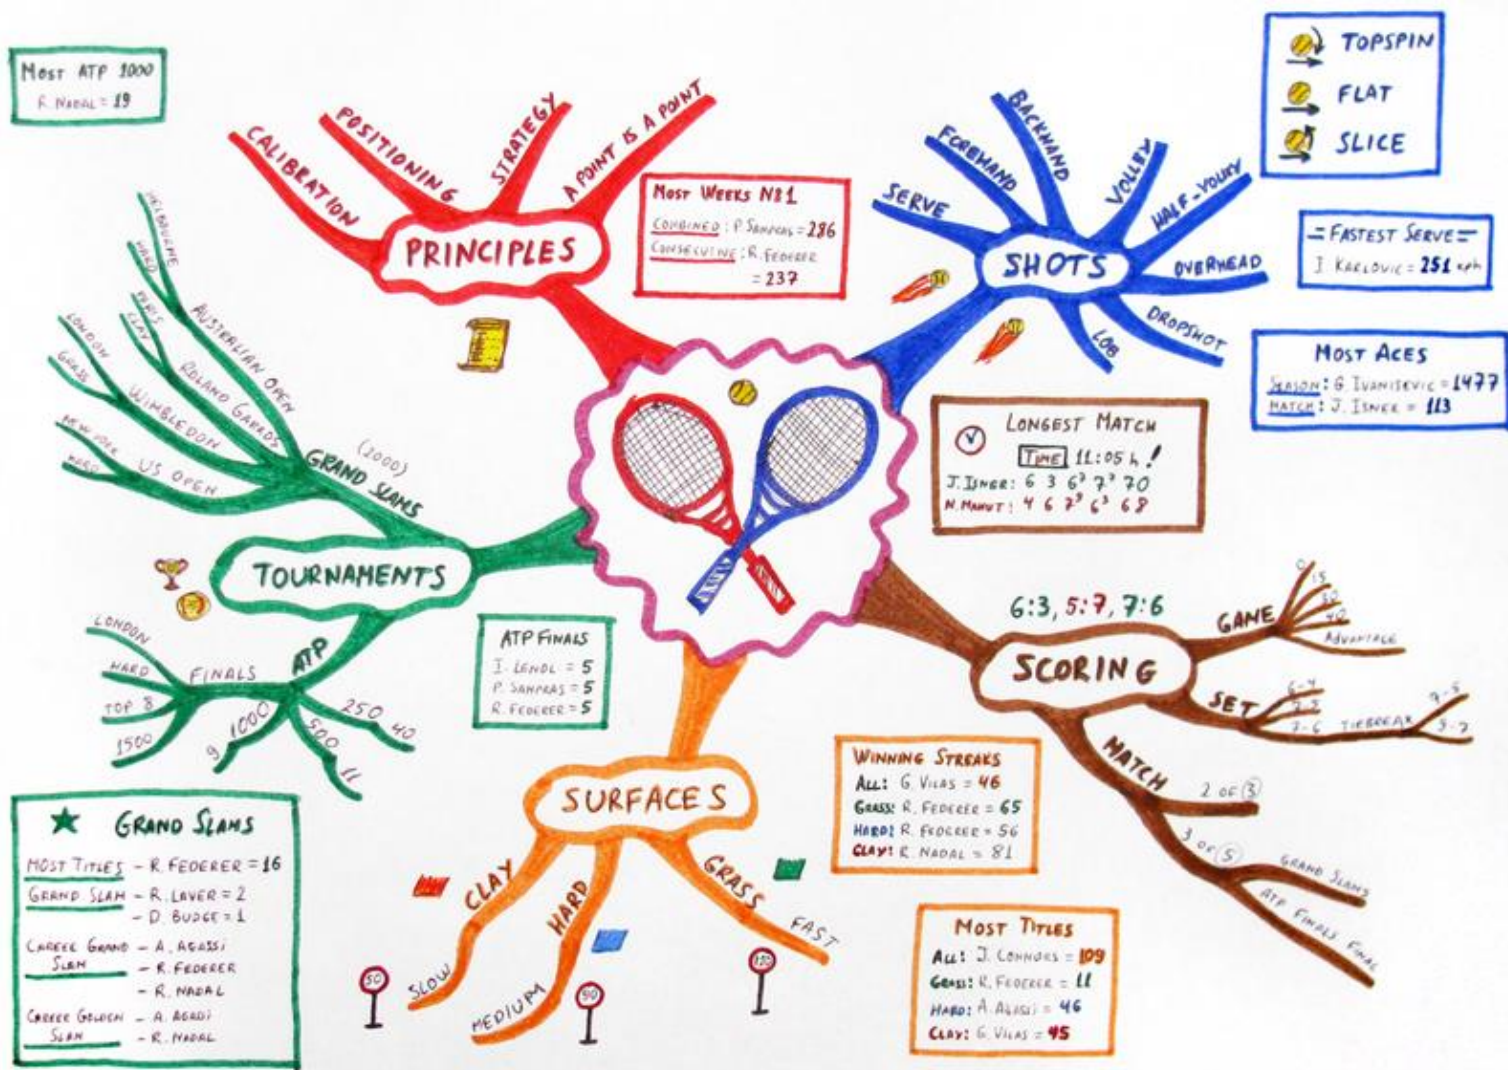 MOST ATP 1000
R. NADAL = 19
CALIBRATION
POSITIONING
STRATEGY
A POINT IS A POINT
PRINCIPLES
MOST WEEKS N81
COMBINED: P. SAMPRAS = 286
CONSECUTIVE: R. FEDERER
= 237
SERVE
FOREHAND
BACKHAND
VOLLEY
HALF-VOLLEY
OVERHEAD
DROPSHOT
LOB
SHOTS
TOPSPIN
FLAT
SLICE
= FASTEST SERVE =
I. KARLOVIC = 251 kph
MOST ACES
SEASON: G IVANISEVIC = 1477
MATCH: J. ISNER = 113
LONGEST MATCH
TIME 11:05 h!
J. ISNER: 6 3 6⁷ 7⁷ 70
N. MAHUT: 4 6 7⁹ 6³ 68
MELBOURNE
HARD
AUSTRALIAN OPEN
PARIS
CLAY
ROLAND GARROS
LONDON
GRASS
WIMBLEDON
NEW YORK
HARD
US OPEN
(2000)
GRAND SLAMS
TOURNAMENTS
ATP
FINALS
LONDON
HARD
TOP 8
1500
1000
9
500
11
250
40
ATP FINALS
I. LENDL = 5
P. SAMPRAS = 5
R. FEDERER = 5
6:3, 5:7, 7:6
SCORING
GAME
0
15
30
40
ADVANTAGE
SET
6-4
7-5
7-6
TIEBREAK
7-5
9-7
MATCH
2 OF 3
3 OF 5
GRAND SLAMS
ATP FINALS FINAL
SURFACES
CLAY
SLOW
50
HARD
MEDIUM
90
GRASS
FAST
120
WINNING STREAKS
ALL: G. VILAS = 46
GRASS: R. FEDERER = 65
HARD: R. FEDERER = 56
CLAY: R. NADAL = 81
MOST TITLES
ALL: J. CONNORS = 109
GRASS: R. FEDERER = 11
HARD: A. AGASSI = 46
CLAY: G. VILAS = 45
GRAND SLAMS
MOST TITLES - R. FEDERER = 16
GRAND SLAM - R. LAVER = 2
- D. BUDGE = 1
CAREER GRAND SLAM - A. AGASSI
- R. FEDERER
- R. NADAL
CAREER GOLDEN SLAM - A. AGASSI
- R. NADAL